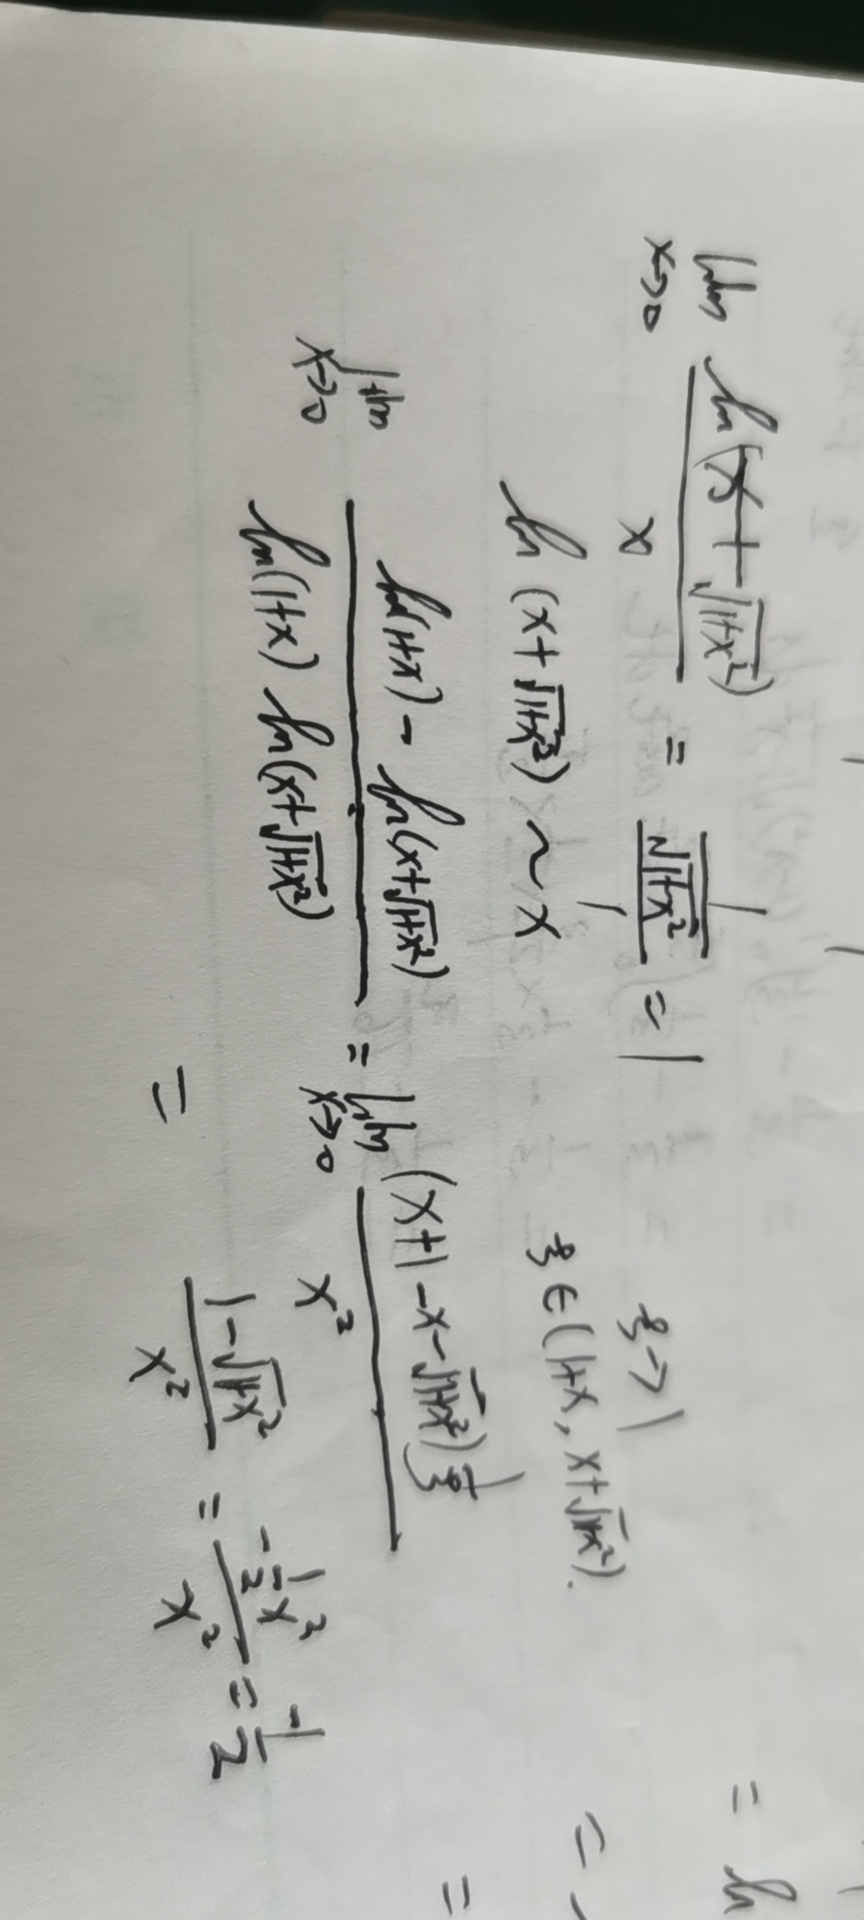 lim_{x→0} ln(x+√(1+x²)) / x = (1/√(1+x²)) / 1 = 1
ln(x+√(1+x²)) ~ x
ξ→1
ξ∈(1+x, x+√(1+x²)).
lim_{x→0} (ln(1+x) - ln(x+√(1+x²))) / (ln(1+x) ln(x+√(1+x²))) = lim_{x→0} (x+1-x-√(1+x²)) 1/ξ / x²
= (1-√(1+x²)) / x² = (-1/2 x²) / x² = -1/2
= ln
=
=